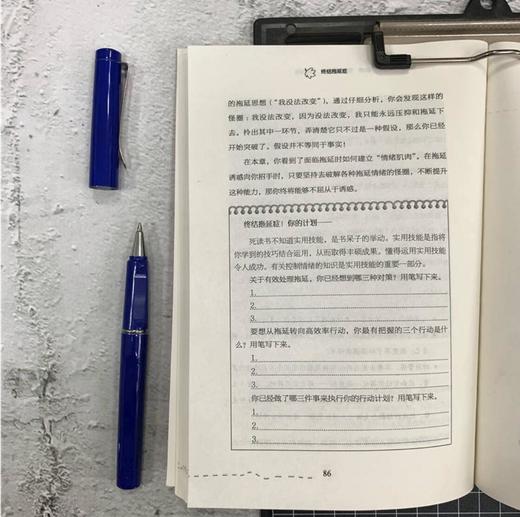 终结拖延症
的拖延思想（“我没法改变”），通过仔细分析，你会发现这样的
怪圈：我没法改变，因为没法改变，我只能永远压抑和拖延下
去。拎出其中一环节，弄清楚它只不过是一种假设，那么你已经
开始突破了，假设并不等同于事实！
在本章，你看到了面临拖延时如何建立“情绪肌肉”，在拖延
诱惑向你招手时，只要坚持去破解各种拖延情绪的怪圈，不断提升
这种能力，那你终将能够不屈从于诱惑。
终结拖延症！你的计划——
死读书不知道实用技能，是书呆子的举动。实用技能是指将
你学到的技巧结合运用，从而取得丰硕成果。懂得运用实用技能
令人成功。有关控制情绪的知识是实用技能的重要一部分。
关于有效处理拖延，你已经想到哪三种对策？用笔写下来。
1.
2.
3.
要想从拖延转向高效率行动，你最有把握的三个行动是什
么？用笔写下来。
1.
2.
3.
你已经做了哪三件事来执行你的行动计划？用笔写下来。
1.
2.
3.
86